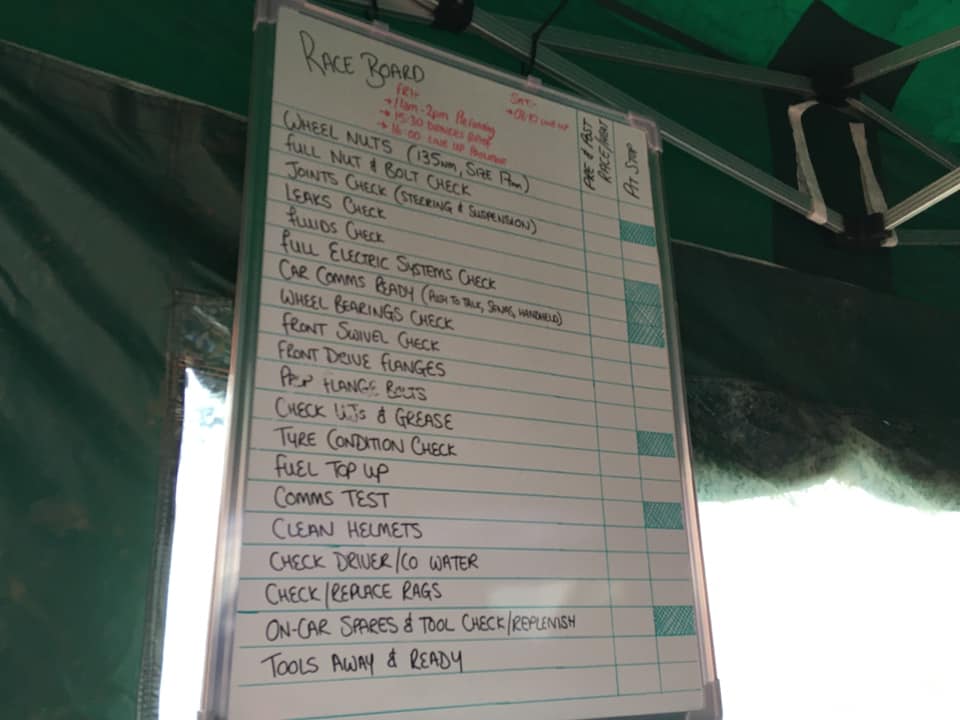 RACE BOARD
FRI:-
SAT:-
→ 11am-2pm
→ 15:30 DRIVERS
→ 16:00 LINE UP
LINE UP
PRE & POST RACE/HEAT
PIT STOP
WHEEL NUTS (135nm, SIZE 17mm)
FULL NUT & BOLT CHECK
JOINTS CHECK (STEERING & SUSPENSION)
LEAKS CHECK
FLUIDS CHECK
FULL ELECTRIC SYSTEMS CHECK
CAR COMMS READY (PUSH TO TALK, SENAS, HANDHELD)
WHEEL BEARINGS CHECK
FRONT SWIVEL CHECK
FRONT DRIVE FLANGES
PROP FLANGE BOLTS
CHECK UJs & GREASE
TYRE CONDITION CHECK
FUEL TOP UP
COMMS TEST
CLEAN HELMETS
CHECK DRIVER/CO WATER
CHECK/REPLACE RAGS
ON-CAR SPARES & TOOL CHECK/REPLENISH
TOOLS AWAY & READY